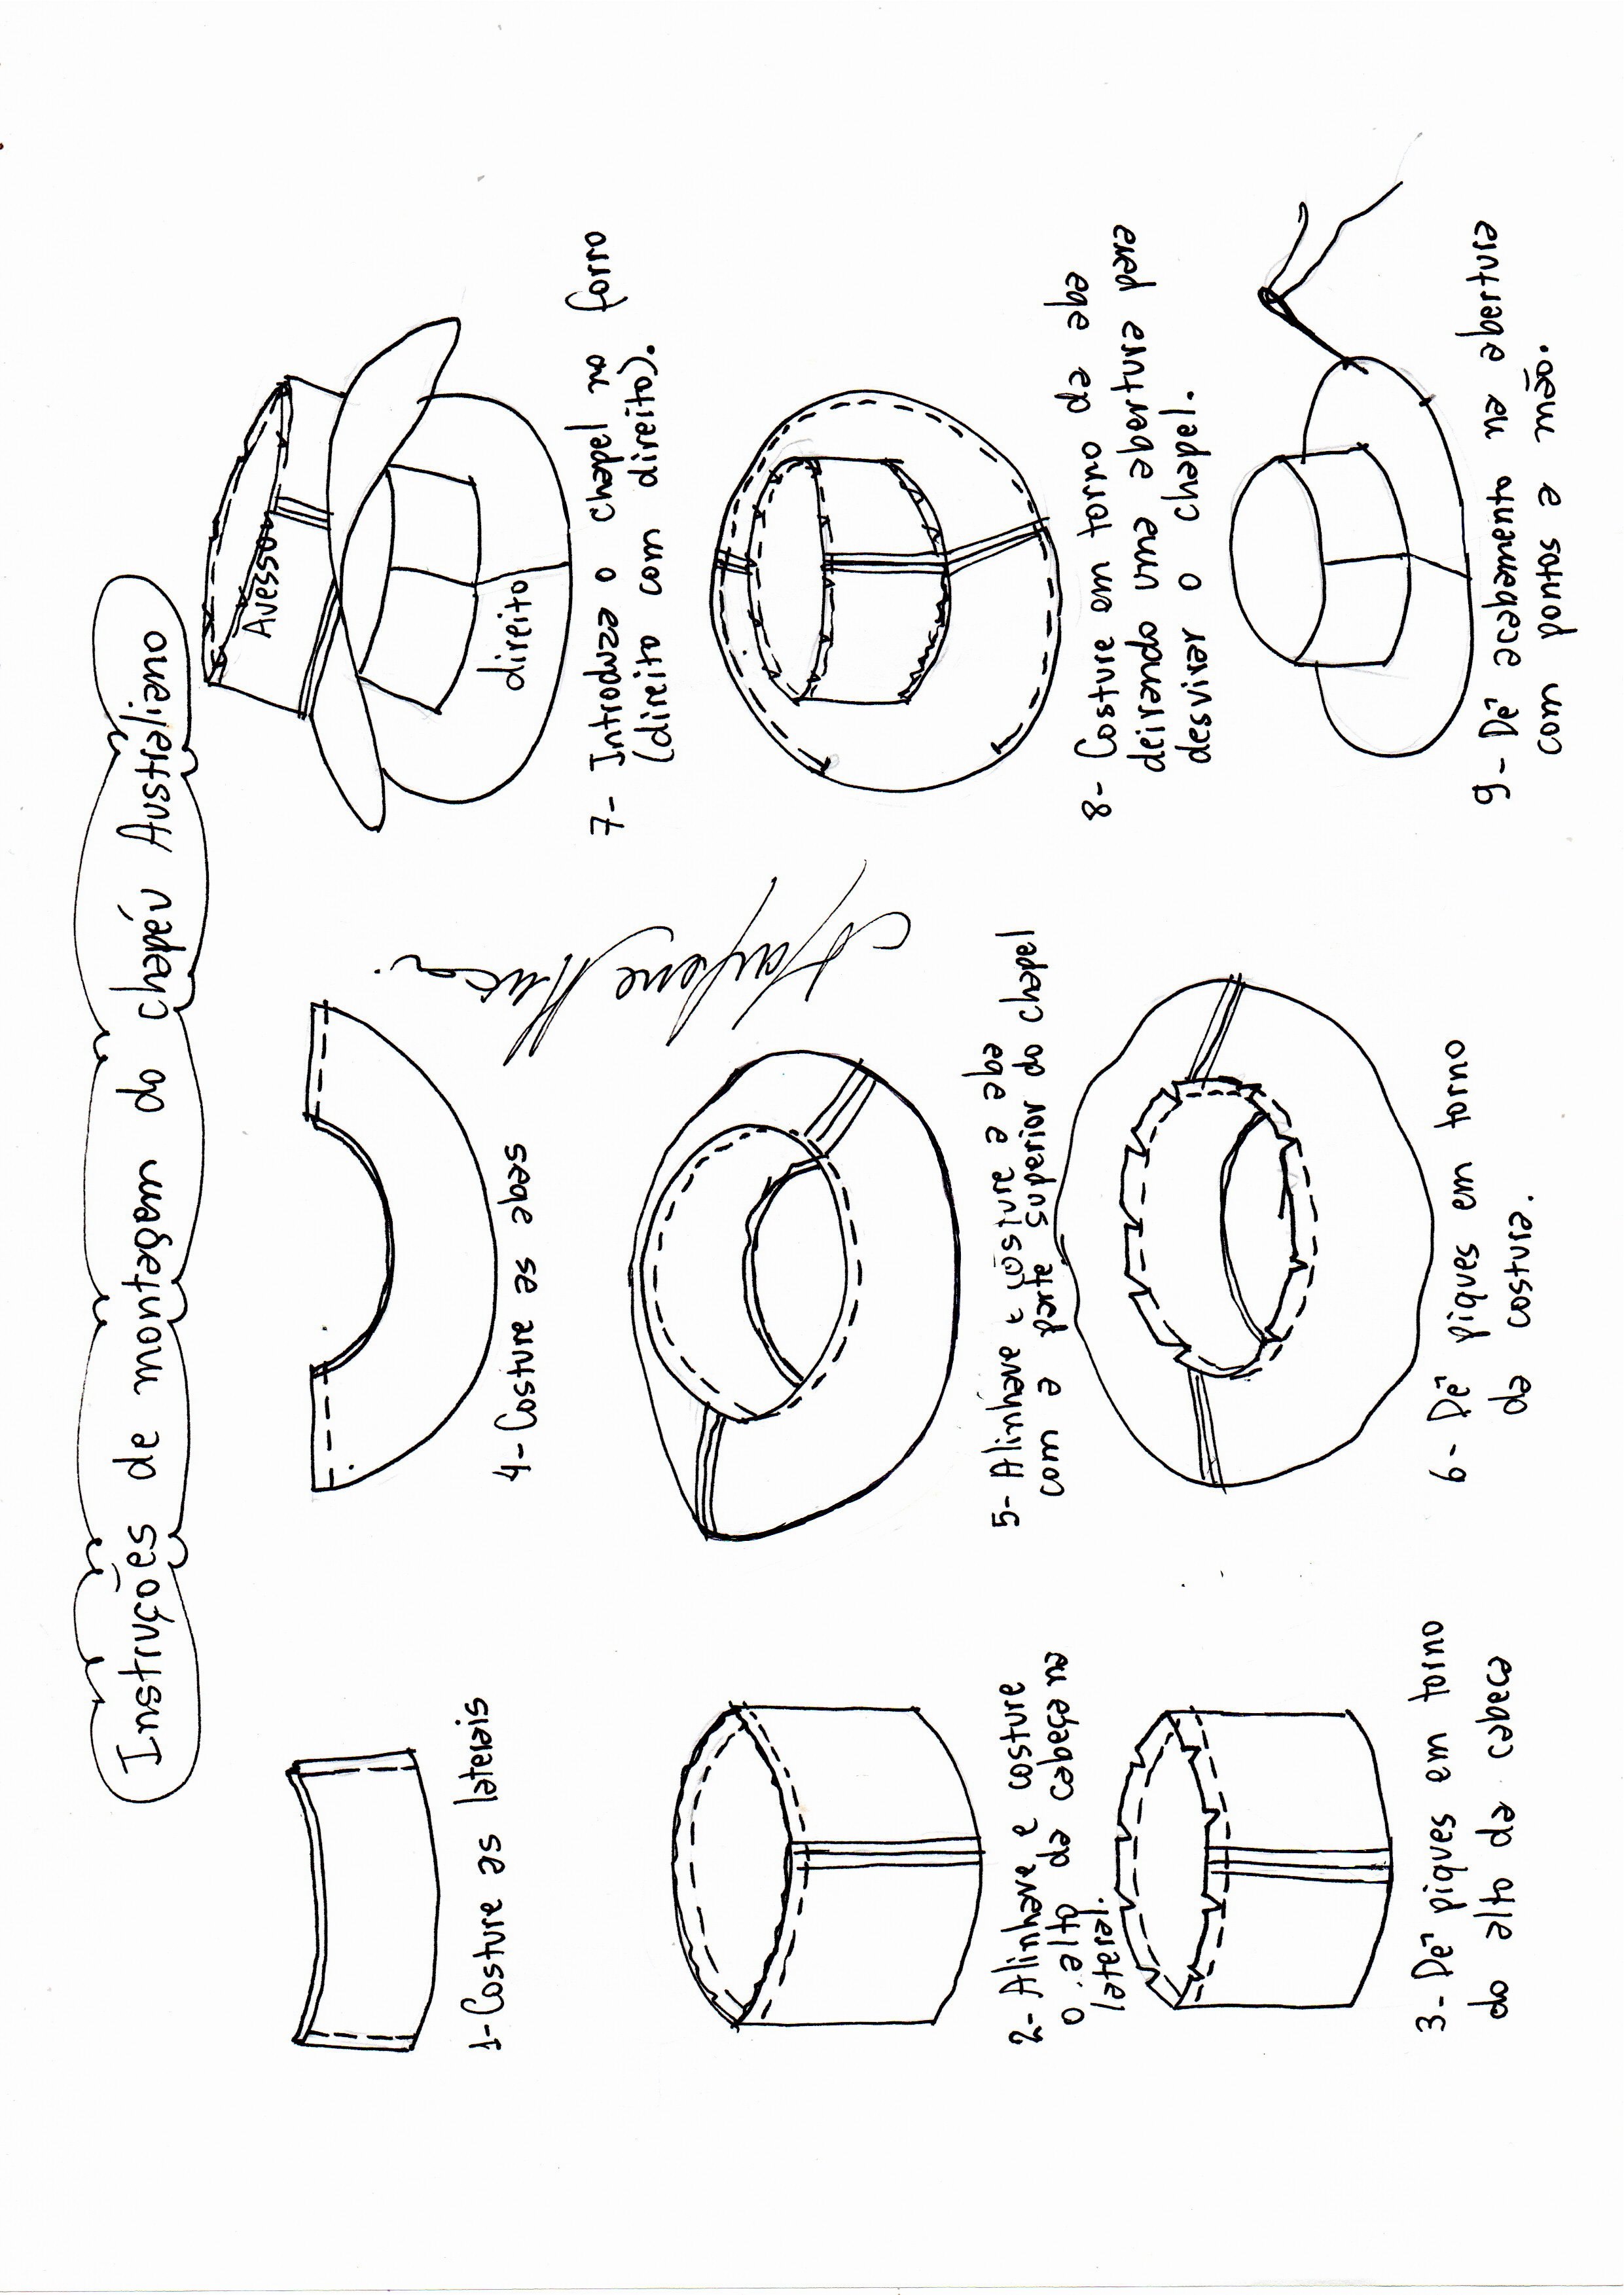 Instruções de montagem do chapéu Australiano
1- Costure as laterais
2- Alinhave e costure
o alto da cabeça na
lateral.
3- Dê piques em torno
do alto da cabeca
4- Costure as abas
5- Alinhave e costure a aba
com a parte superior do chapel
6- Dê piques em torno
da costura.
Avesso
direito
7- Introduza o chapel no forro
(direito com direito).
8- Costure em torno da aba
deixando uma aberture para
desvirar o chapel.
9- Dê acabamento na abertura
com pontos a mão.